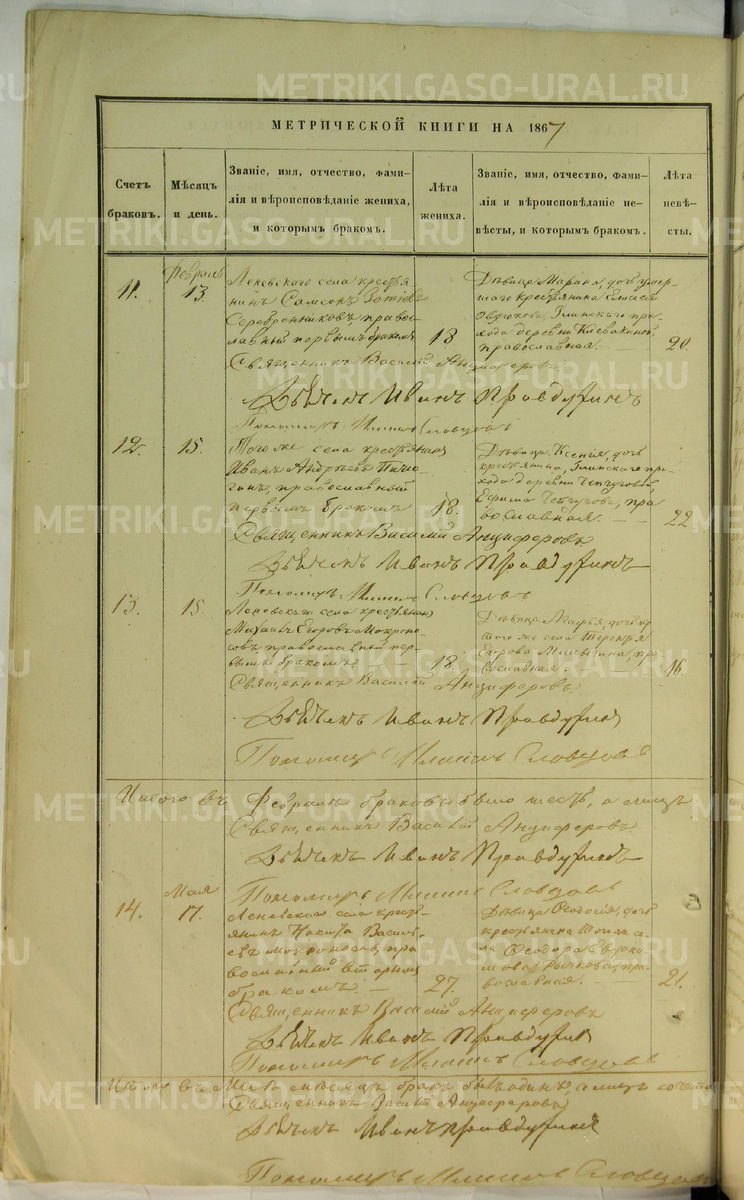 METRIKI.GASO-URAL.RU
МЕТРИЧЕСКОЙ КНИГИ НА 1867
Счетъ
браковъ.
Мѣсяцъ
и день.
Званіе, имя, отчество, фами-
лія и вѣроисповѣданіе жениха,
и которымъ бракомъ.
Лѣта
жениха.
Званіе, имя, отчество, фами-
лія и вѣроисповѣданіе не-
вѣсты, и которымъ бракомъ.
Лѣта
невѣ-
сты.
11.
Февраль
13.
Леневскаго села крестья-
нинъ Самсонъ Зотѣевъ
Серебренниковъ, правос-
лавный первымъ бракомъ
18
Дѣвица Марина, дочь умер-
шаго крестьянина Елисея
Глинскаго при-
хода деревни Клевакиной,
православная.
20.
Священникъ Василій Анциферовъ
Дьячекъ Иванъ Правдухинъ
Пономарь Словцовъ
12.
15.
Того же села крестьянинъ
Иванъ Андреевъ
православный
первымъ бракомъ
18.
Дѣвица Ксенія, дочь
крестьянина, Глинскаго при-
хода деревни Чепчуговой,
Ефима Чепчугова, пра-
вославная.
22
Священникъ Василій Анциферовъ
Дьячекъ Иванъ Правдухинъ
Пономарь Словцовъ
13.
15.
Леневскаго села крестьянинъ
Михаилъ Егоровъ Мокроно-
совъ, православный пер-
вымъ бракомъ
18.
Дѣвица Марья, дочь кр.
того же села Терентья
Егорова Малыгина, пра-
вославная.
16.
Священникъ Василій Анциферовъ
Дьячекъ Иванъ Правдухинъ
Пономарь Словцовъ
Итого въ Февралѣ браковъ было шесть, а лицъ
Священникъ Василій Анциферовъ
Дьячекъ Иванъ Правдухинъ
Пономарь Словцовъ
14.
Мая
17.
Леневскаго села кресть-
янинъ Никита Василь-
евъ Мокроносовъ, пра-
вославный вторымъ
бракомъ
27.
Дѣвица Ѳеодосія, дочь
крестьянина того же се-
ла Ѳеодора Евдоки-
мова Рычкова, пра-
вославная.
21.
Священникъ Василій Анциферовъ
Дьячекъ Иванъ Правдухинъ
Пономарь Словцовъ
Итого въ Маѣ мѣсяцѣ бракъ былъ одинъ, а лицъ
Священникъ Василій Анциферовъ
Дьячекъ Иванъ Правдухинъ
Пономарь Словцовъ